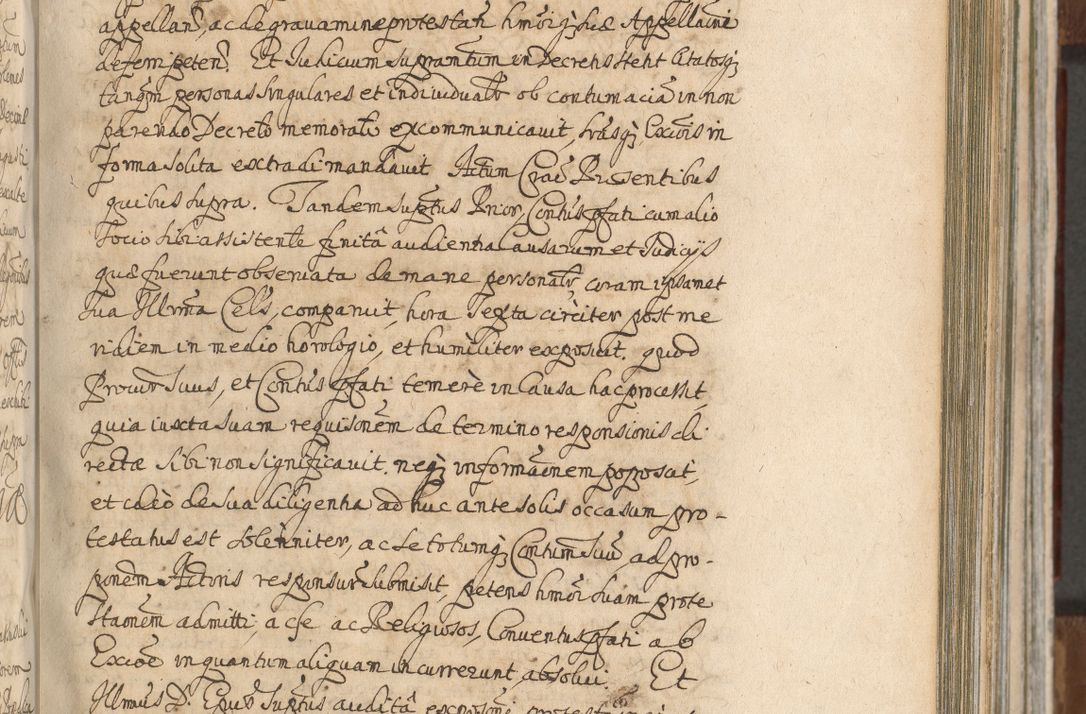 appellan̄, ac de gravamine protestañ hmōi qz suæ Appellaōni
deferri peten̄. Et Iudicium supranttum in Decretis stetit Ataḃsqz
tanqm̄ personas singulares et individualr̄ ob contumaciã in non
parendo Decreto memorato excommunicavit, lrasqz Excōnis in
forma solita extradi mandavit Actum Crāc Præsentibus
quibus supra. Tandem supttus Prior, Contūs pfati cum alio
socio sibi assistente finitâ audientia Causarum et Iudicijs
quæ fuerunt observata de mane personalr̄, coram ipsamet
sua Illrma Cels, comparuit, hora sexta circiter post me
ridiem in medio horologio, et humiliter exposuit. quod
Procur suus, et Contūs pfati temerè in Causa hac processit
quia iuxta suam requisonēm de termino responsionis di
recte sibi non significavit, neqz informaōnem poposcit,
et ideò de sua diligentia ad huc ante solis occasum pro-
testatus est solēniter, ac se totumqz Contum suū ad pro-
ponem Actoris responsur̄ submisit, petens hmōi suam prote
staonēm admitti, ac se ac Religiosos, Conventus pfati ab
Excōe in quantum aliquam incurrerunt, absolvi. Et
Illmus D. Epus supttus auditâ